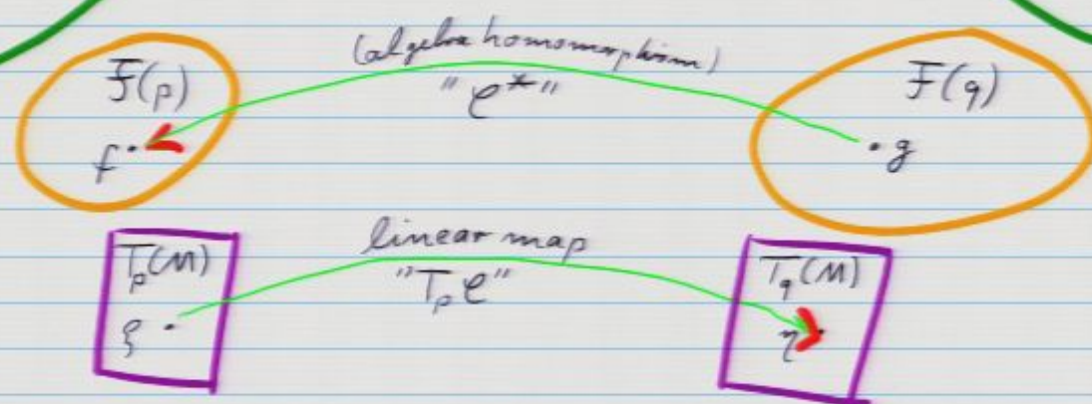 (algebra homomorphism)
F(p)
F(q)
"φ*"
f
g
linear map
T_p(M)
T_q(M)
"T_p φ"
ξ
η